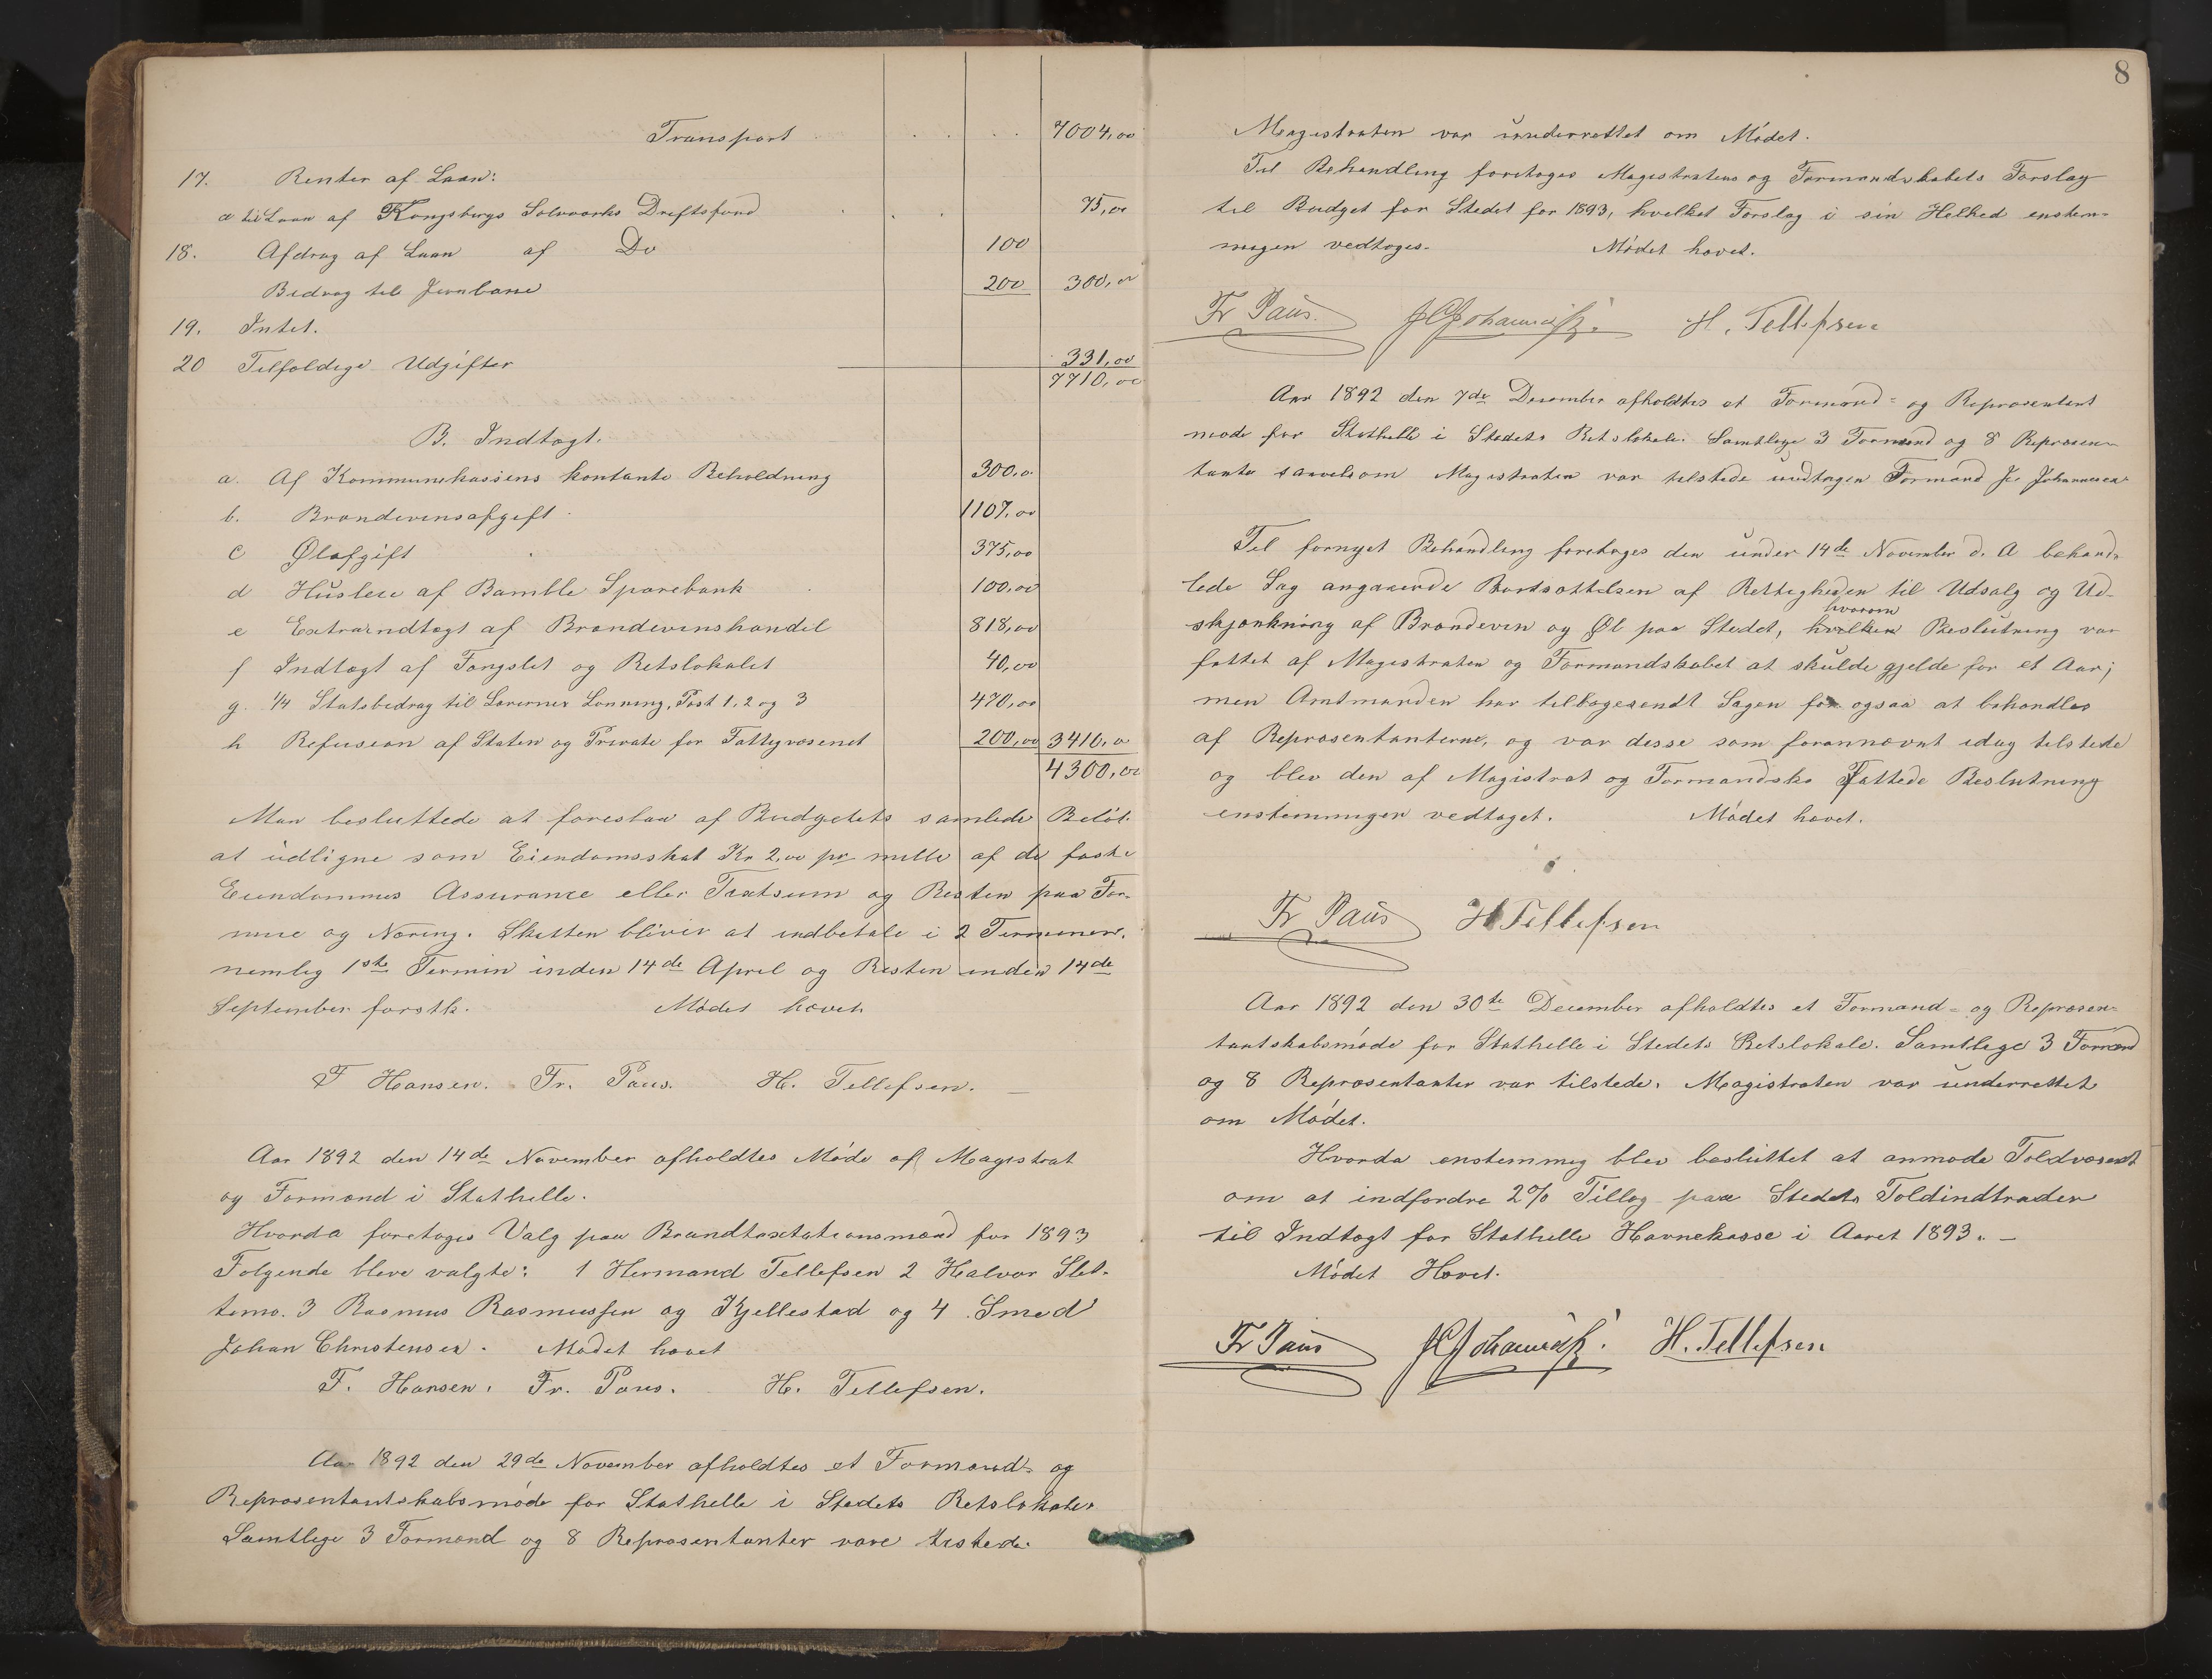 Transport . . . . 7004,00
17. Renter af Laan:
a til Laan af Kongsbergs Sølvværks Driftsfond . . . 75,00
18. Afdrag af Laan af Do 100
Bidrag til Jernbane 200 300,00
19. Intet.
20 Tilfældige Udgifter 331,00
7710,00
B. Indtægt.
a. Af Kommunekassens kontante Beholdning 300,00
b. Brændevinsafgift 1107,00
c Ølafgift 375,00
d Husleie af Bamble Sparebank 100,00
e Extraindtægt af Brændevinshandel 818,00
f Indtægt af Fængslet og Retslokalet 40,00
g. 1/4 Statsbidrag til Lærernes Lønning, Post 1, 2 og 3 470,00
h Refusion af Staten og Private for Fattigvæsenet 200,00 3410,00
4300,00
Man besluttede at foreslaa af Budgetets samlede Beløb
at udligne som Eiendomsskat Kr 2,00 pr mille af de faste
Eiendommes Assurance eller Taxtsum og Resten paa For-
mue og Næring. Skatten bliver at indbetale i 2 Terminer,
nemlig 1ste Termin inden 14de April og Resten inden 14de
September førstk. Mødet hævet
F Hansen. Fr. Paus. H. Tellefsen.
Aar 1892 den 14de November afholdtes Møde af Magistrat
og Formænd i Stathelle.
Hvorda foretoges Valg paa Brandtaxtationsmænd for 1893
Følgende bleve valgte: 1 Hermand Tellefsen 2 Halvor Slet-
temo. 3 Rasmus Rasmussen og Kjellestad og 4. Smed
Johan Christensen. Mødet hævet
F. Hansen. Fr. Paus. H. Tellefsen.
Aar 1892 den 29de November afholdtes et Formand- og
Repræsentantskabsmøde for Stathelle i Stedets Retslokale.
Samtlige 3 Formænd og 8 Repræsentanter vare tilstede.
8
Magistraten var underrettet om Mødet.
Til Behandling foretoges Magistratens og Formandskabets Forslag
til Budget for Stedet for 1893, hvilket Forslag i sin Helhed enstem-
migen vedtoges. Mødet hævet.
Fr Paus. H. Tellefsen
Aar 1892 den 7de December afholdtes et Formænd- og Repræsentant
møde for Stathelle i Stedets Retslokale. Samtlige 3 Formænd og 8 Repræsen-
tanter saavelsom Magistraten var tilstede undtagen Formand Jc Johannesen
Til fornyet Behandling foretoges den under 14de November d. A behand-
lede Sag angaaende Bortsættelsen af Rettigheden til Udsalg og Ud-
hvorom
skjænkning af Brændevin og Øl paa Stedet, hvilken Beslutning var
fattet af Magistraten og Formandskabet at skulde gjelde for et Aar;
men Amtmanden har tilbagesendt Sagen for ogsaa at behandles
af Repræsentanterne, og var disse som forannævnt idag tilstede
og blev den af Magistrat og Formandsk. Fattede Beslutning
enstemmigen vedtaget. Mødet hævet.
Fr Paus H Tellefsen
Aar 1892 den 30te December afholdtes et Formand- og Repræsen-
tantskabsmøde for Stathelle i Stedets Retslokale. Samtlige 3 Formænd
og 8 Repræsentanter var tilstede. Magistraten var underrettet
om Mødet.
Hvorda enstemmig blev besluttet at anmode Toldvæsenet
om at indfordre 2% Tillæg paa Stedets Toldindtrader
til Indtægt for Stathelle Havnekasse i Aaret 1893. –
Mødet Hævet.
Fr Paus H. Tellefsen